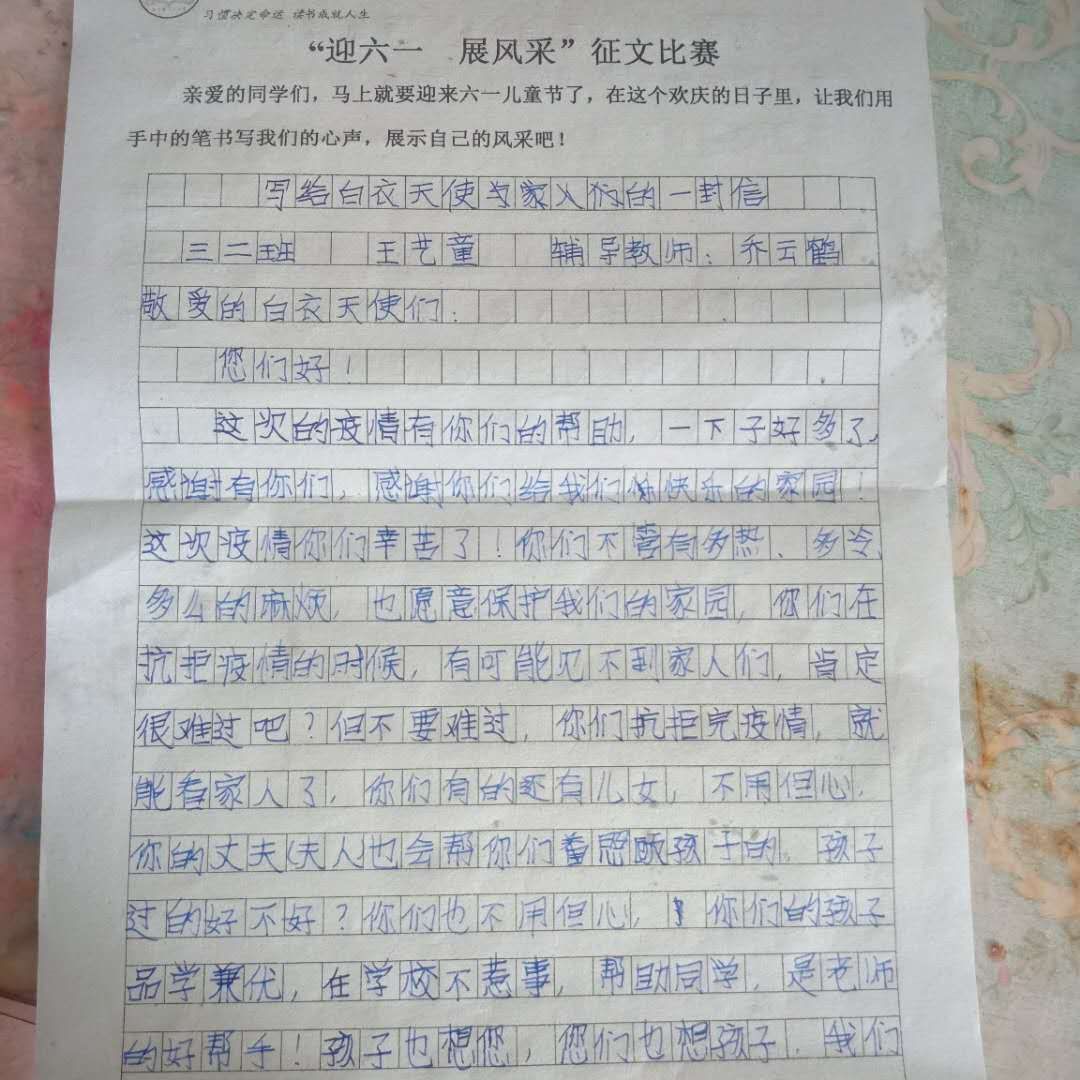 习惯决定命运 读书成就人生
“迎六一 展风采”征文比赛
亲爱的同学们，马上就要迎来六一儿童节了，在这个欢庆的日子里，让我们用
手中的笔书写我们的心声，展示自己的风采吧！
写给白衣天使与家人们的一封信
三二班 王艺童 辅导教师：乔云鹤
敬爱的白衣天使们：
您们好！
这次的疫情有你们的帮助，一下子好多了，
感谢有你们，感谢你们给我们快乐的家园！
这次疫情你们辛苦了！你们不管有多热、多冷、
多么的麻烦，也愿意保护我们的家园，你们在
抗拒疫情的时候，有可能见不到家人们，肯定
很难过吧？但不要难过，你们抗拒完疫情，就
能看家人了，你们有的还有儿女，不用但心，
你的丈夫(夫人)也会帮你们照顾孩子的。孩子
过的好不好？你们也不用但心，你们的孩子
品学兼优，在学校不惹事，帮助同学，是老师
的好帮手！孩子也想您，您们也想孩子．我们